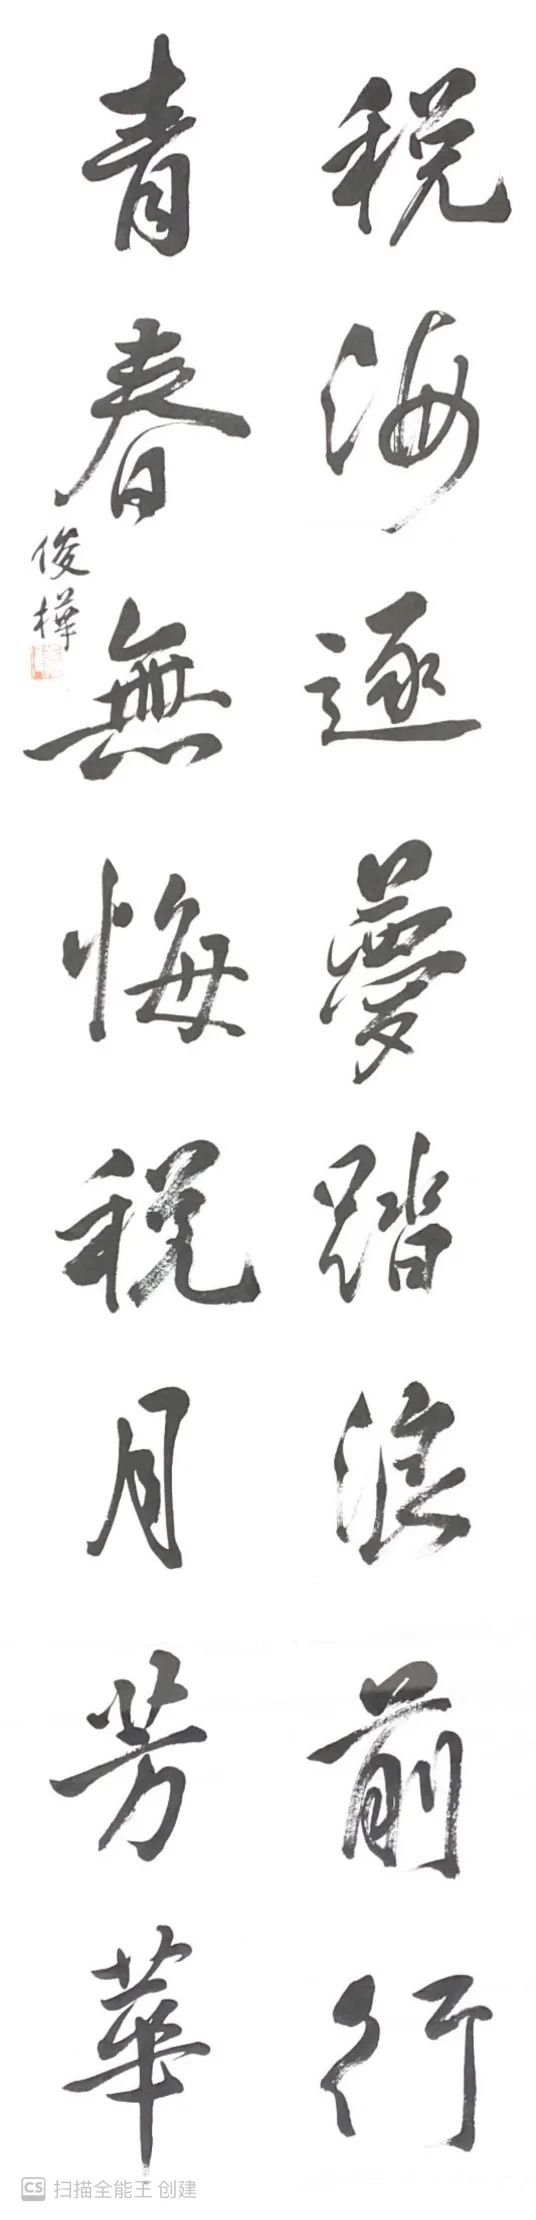 税海逐夢踏浪前行
青春無悔税月芳華
俊樺
CS 扫描全能王 创建